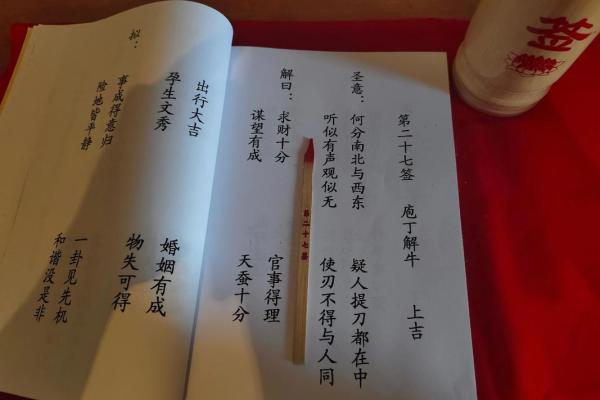 第二十七签 庖丁解牛 上吉
圣意：何分南北与西东 疑人提刀都在中
听似有声观似无 使刃不得与人同
解曰：求财十分 官事得理
谋望有成 天蚕十分
出行大吉 婚姻有成
孕生文秀 物失可得
拟：事成得意归 一卦见先机
险地皆平静 和谐没是非
第二十七签
签